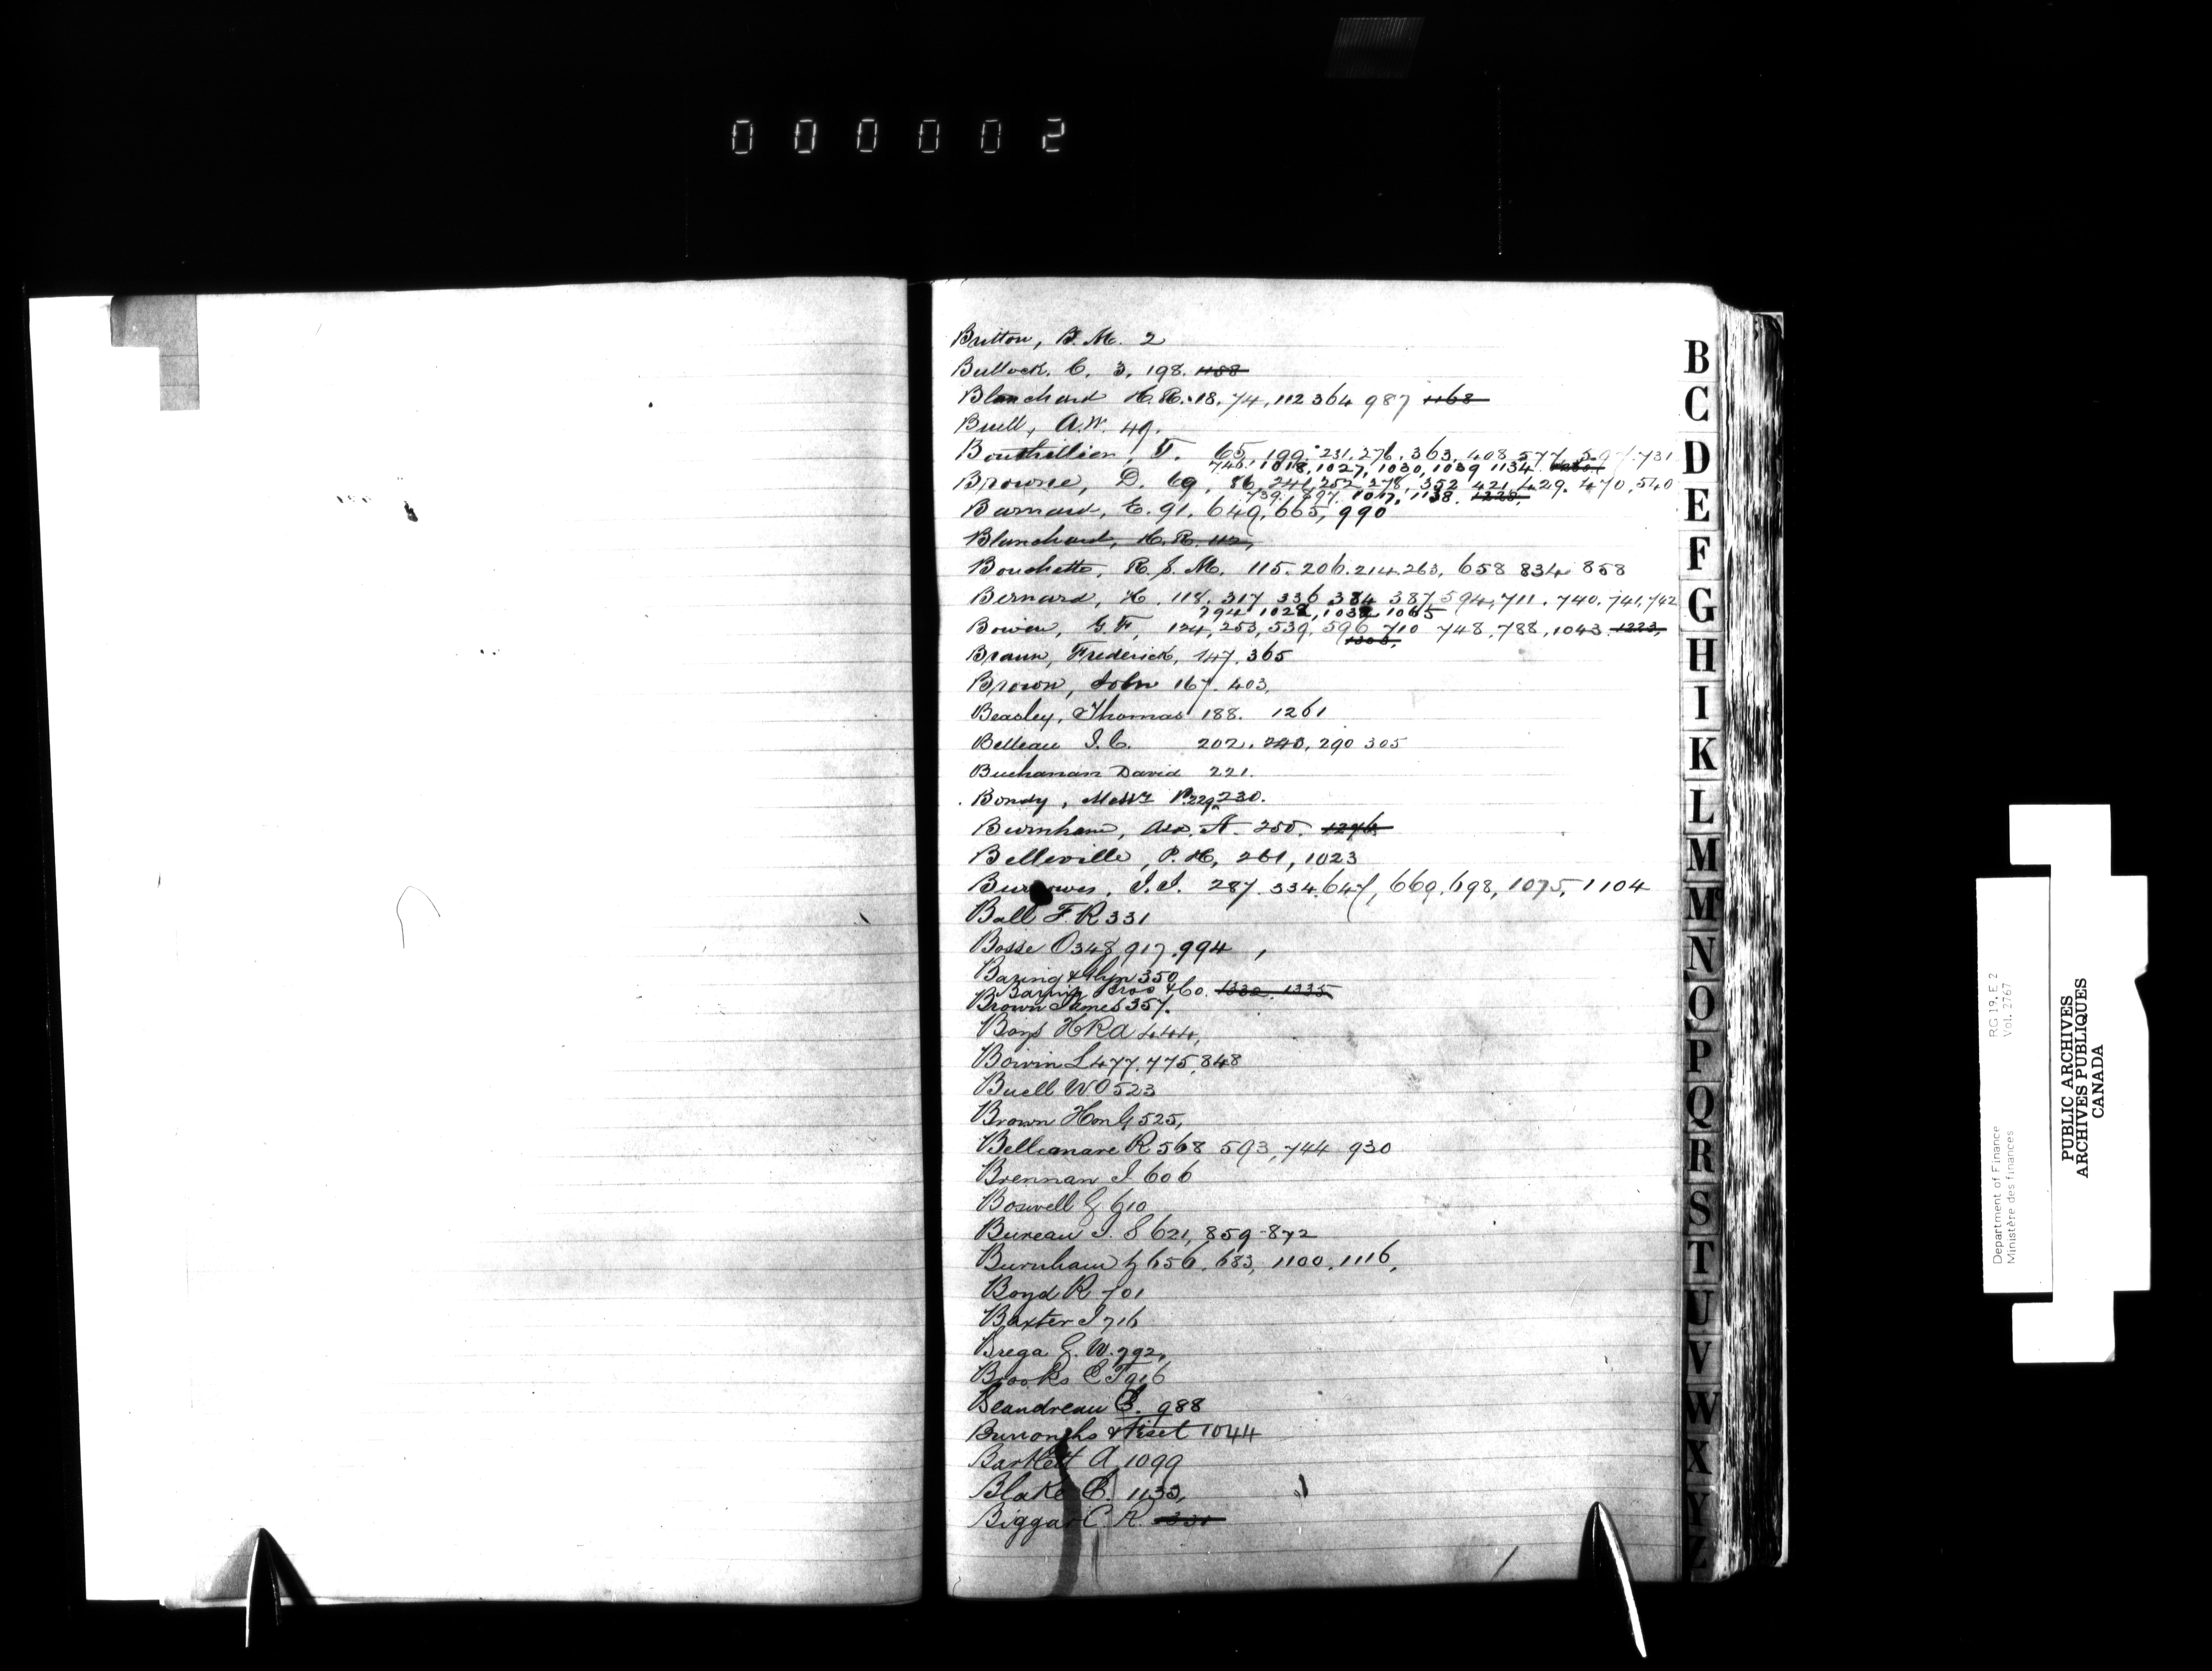 000002
Britton, B. M. 2
Bullock. C. 3, 198. 1158
Blanchard H. R. 18, 74, 112 364 987 1168
Buell, A. W. 49.
Bouthillier, T. 65, 199, 231, 276, 363, 408, 577, 597, 731
746, 1018, 1027, 1030, 1039 1134
Browne, D. 69, 86, 241, 252, 278, 352 421, 429. 470, 540
739, 897, 1017, 1138. 1228,
Barnard, E. 91, 649, 665, 990
Blanchard, H. R. 112,
Bouchette, R. S. M. 115. 206. 214. 263, 658 834 858
Bernard, H. 118. 317 336 384 387 594, 711. 740. 741, 742
794 1028, 1038 1065
Bowen, G. F, 124, 253, 539, 596 710 748, 788, 1043 1223,
1303,
Braun, Frederick, 147. 365
Brown, John 167. 403,
Beasley, Thomas 188. 1261
Belleau I. C. 202. 240, 290 305
Buchanan David 221.
Bondy, P. 229, 230.
Burnham, A. 250. 1276
Belleville, P. H, 261, 1023
Burrowes, I. I. 287. 334. 647, 669, 698, 1075, 1104
Ball F. R 331
Bosse O 348, 917, 994
Baring & Glyn 350
Baring Bros & Co. 1332, 1335
Brown James 357.
Boys H R A 444,
Boivin L 477, 775, 848
Buell W O 523
Brown Hon G 525,
Bellemare R 568 593, 744 930
Brennan I 606
Boswell G 610
Bureau I. S 621, 859-872
Burnham G 656, 683, 1100, 1116,
Boyd R 701
Baxter I 716
Brega G. W. 792,
Brooks C T 916
Beaudreau E. 988
Burroughs & Fiset 1044
Bartlett A 1099
Blake E. 1133,
Biggar C. R.
B
C
D
E
F
G
H
I
K
L
M
Mc
N
O
P
Q
R
S
T
U
V
W
X
Y
Z
Department of Finance RG 19, E 2
Ministère des finances Vol. 2767
PUBLIC ARCHIVES
ARCHIVES PUBLIQUES
CANADA